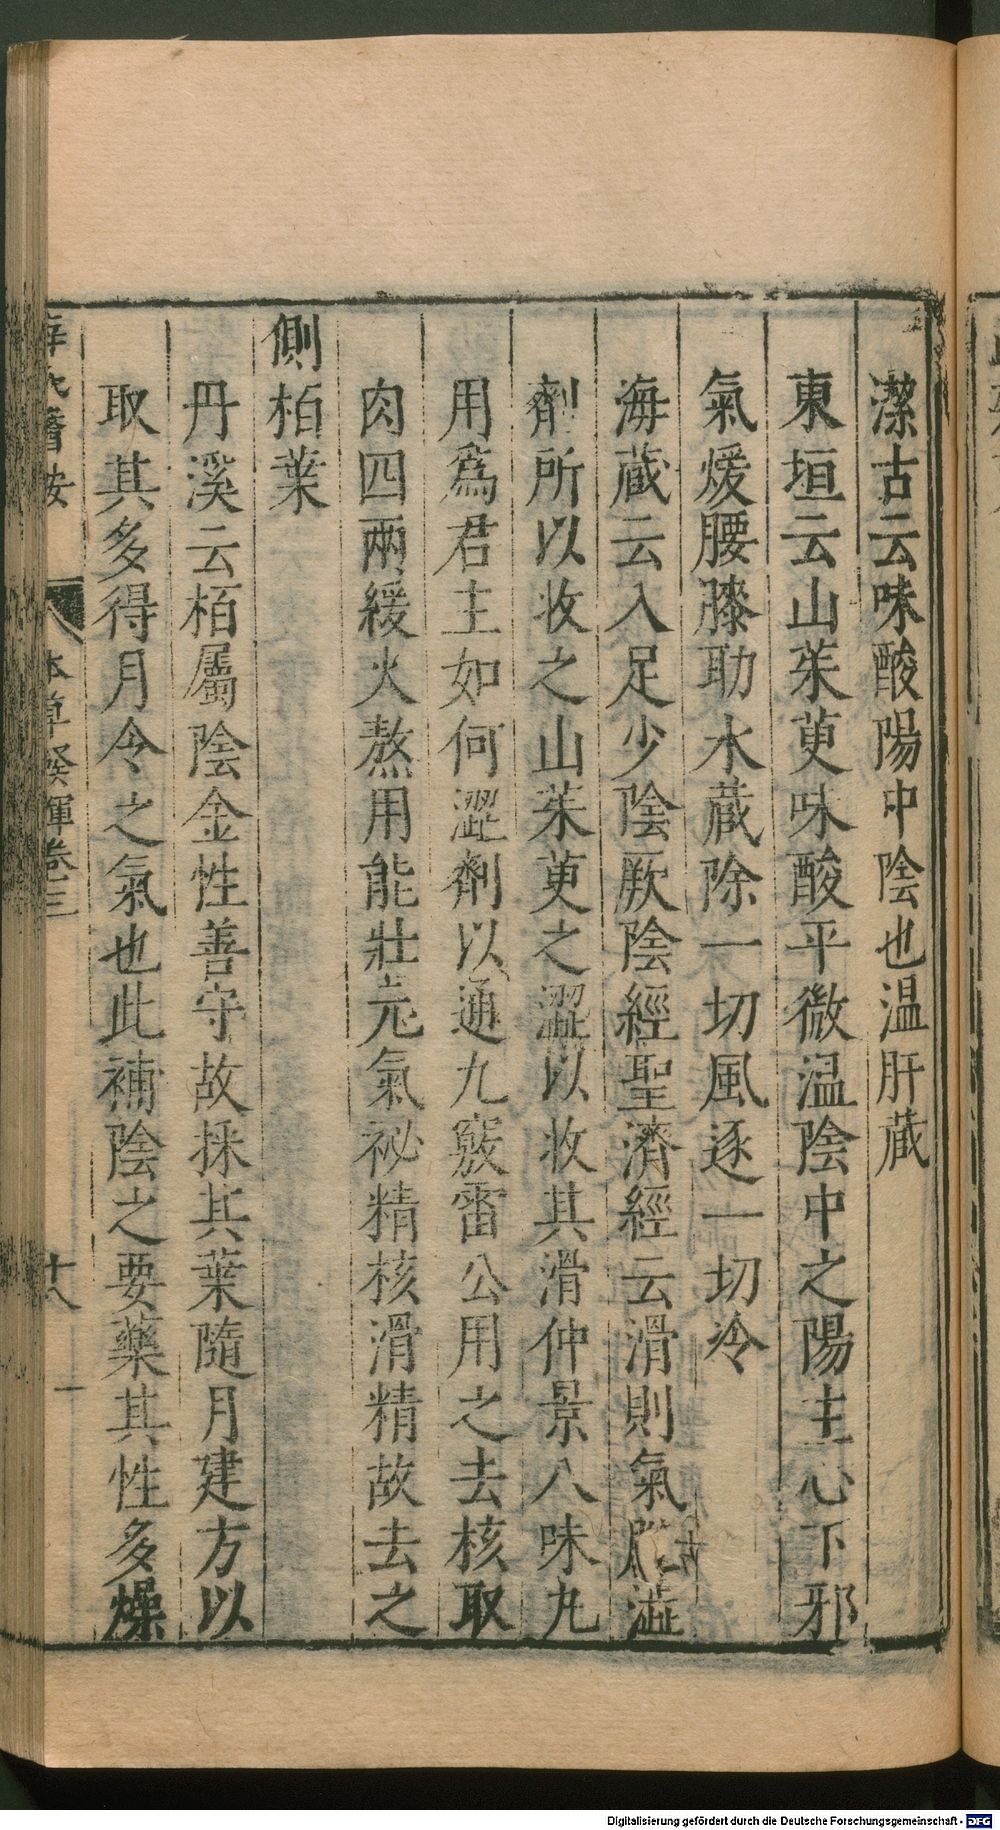 潔古云味酸陽中陰也温肝蔵
東垣云山茱萸味酸平微温陰中之陽主心下邪
氣煖腰膝助水蔵除一切風逐一切冷
海蔵云入足少陰厥陰經聖濟經云滑則氣脱澁
劑所以收之山茱萸之澀以收其滑仲景八味丸
用爲君主如何澀劑以通九竅雷公用之去核取
肉四兩緩火熬用能壯元氣祕精核滑精故去之
側栢葉
丹溪云栢屬陰金性善守故採其葉隨月建方以
取其多得月令之氣也此補陰之要藥其性多燥
薛氏醫按 本草發揮卷三 十八
Digitalisierung gefördert durch die Deutsche Forschungsgemeinschaft - DFG